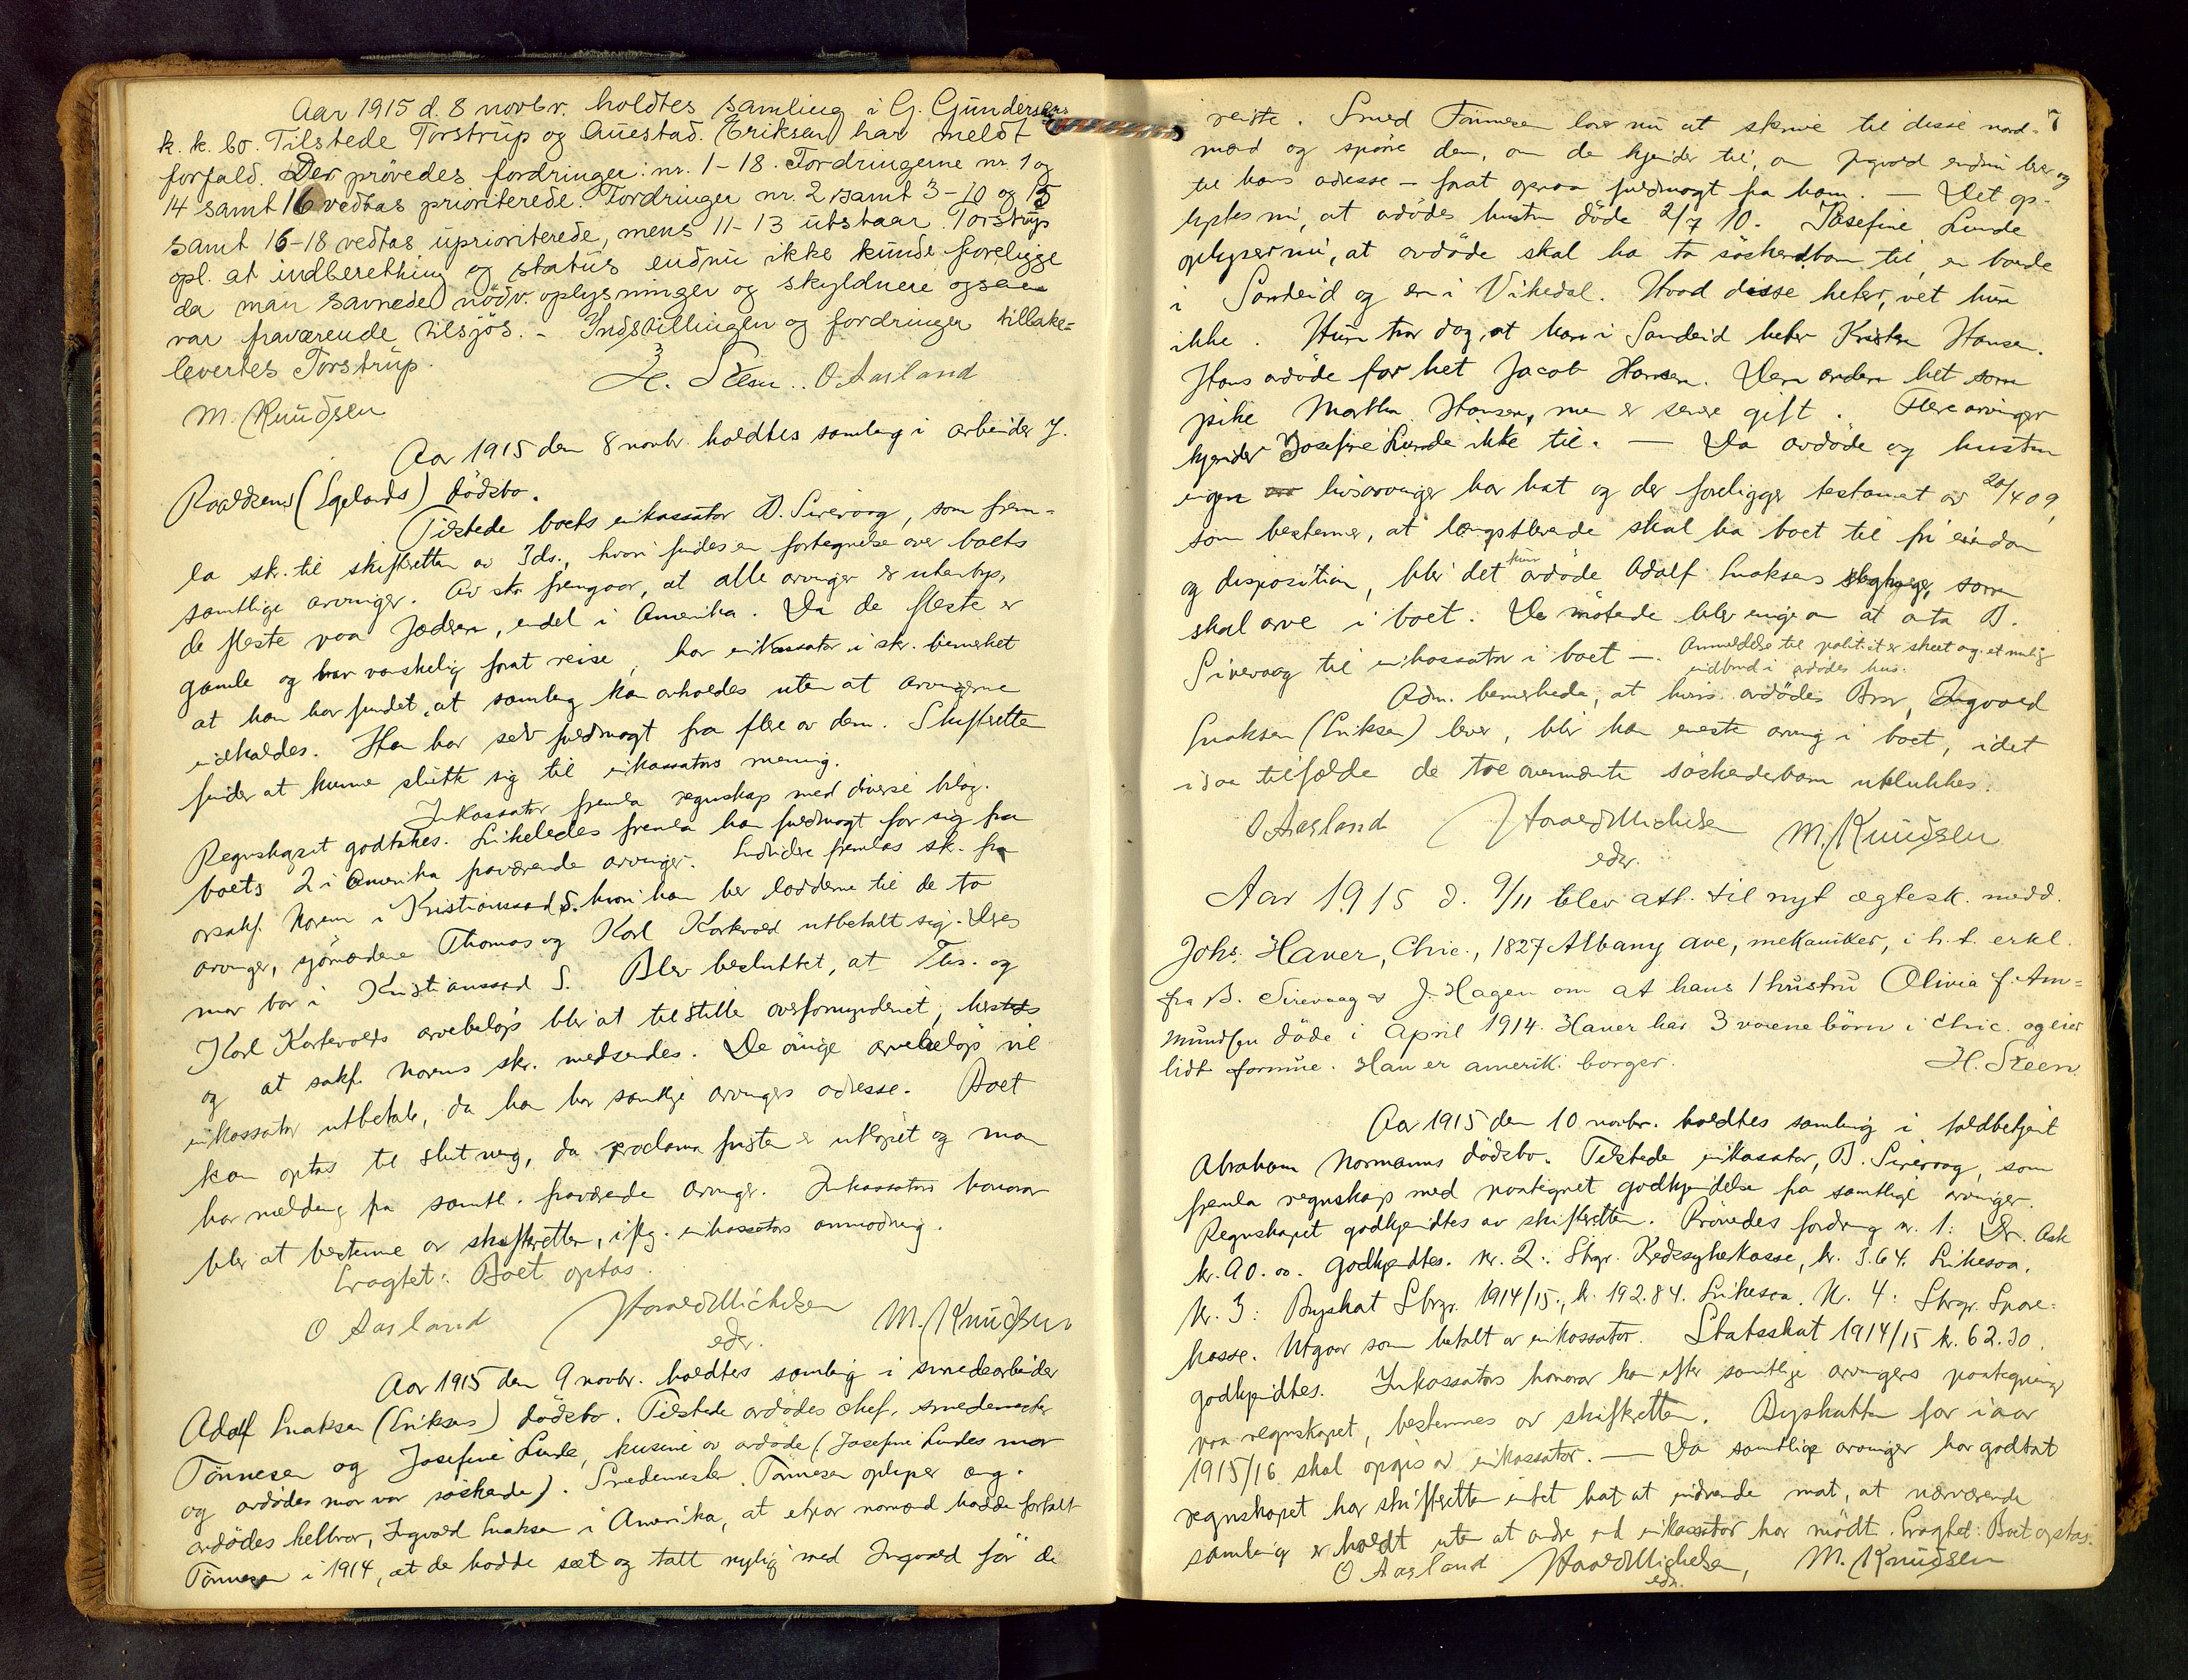 Aar 1915 d. 8 novbr. holdtes samling i G. Gundersens
k. k. bo. Tilstede Torstrup og Auestad. Eriksen har meldt
forfald. Der prövedes fordringer: nr. 1-18. Fordringerne nr. 1 og
14 samt 16 vedtas prioriterede. Fordringer nr. 2 samt 3-10 og 15
samt 16-18 vedtas uprioriterede, mens 11-13 utstaar. Torstrup
opl. at indberetning og status endnu ikke kunde foreligge
da man savnede nödv. oplysninger og skyldnere ogsaa
var fraværende tilsjös. - Indstillingen og fordringer tilbake=
levertes Torstrup.
H. Steen. O Aasland
M. Knudsen
Aar 1915 den 8 novbr. holdtes samling i arbeider J.
Roaldsens (Egelands) dödsbo.
Tilstede boets inkassator B. Sirevaag, som frem-
la skr. til skifteretten av 3 ds., hvori findes en fortegnelse over boets
samtlige arvinger. Av skr. fremgaar, at alle arvinger er utenbys,
de fleste paa Jæderen, endel i Amerika. Da de fleste er
gamle og har vanskelig forat reise, har inkassator i skr. bemerket
at han har fundet, at samling kan avholdes uten at arvingerne
indkaldes. Han har selv fuldmagt fra flere av dem. Skifteretten
finder at kunne slutte sig til inkassators mening.
Inkassator fremla regnskap med diverse bilag.
Regnskapet godtokes. Likeledes fremla han fuldmagt for sig fra
boets 2 i Amerika fraværende arvinger. Endvidere fremlas skr. fra
o.r.sakf. Norem i Kristianssand S. hvori han ber lodderne til de to
arvinger, sjömændene Thomas og Karl Kartevold utbetalt sig. Deres
mor bor i Kristianssand S. Blev besluttet, at Ths. og
Karl Kartevolds arvebelöp blir at tilstille overformynderiet,
og at sakf. Norems skr. medsendes. De övrige arvebelöp vil
inkassator utbetale, da han har samtlige arvingers adresse. Boet
kan optas til slutning, da proclama fristen er utlöpet og man
har melding fra samtl. fraværende arvinger. Inkassators honorar
blir at bestemme av skifteretten, iflg. inkassators anmodning.
Eragtet: Boet optas.
O Aasland Harald Michelsen M. Knudsen
edr.
Aar 1915 den 9 novbr. holdtes samling i smedearbeider
Adolf Isaksen (Eriksens) dödsbo. Tilstede avdödes chef, smedemester
Tönnesen og Josefine Lunde, kusine av avdöde (Josefine Lundes mor
og avdödes mor var söskende). Smedemester Tönnesen oplyser ang.
avdödes helbror, Ingvald Isaksen i Amerika, at et par normænd hadde fortalt
Tönnesen i 1914, at de hadde set og talt nylig med Ingvald för de
7
reiste. Smed Tönnesen lover nu at skrive til disse nord-
mænd og spörre dem, om de kjender til, om Ingvald endnu lever og
til hans adresse - forat opnaa fuldmagt fra ham. - Det op-
lystes nu, at avdödes hustru döde 2/7 10. Josefine Lunde
oplyser nu, at avdöde skal ha to söskendbarn til, en boende
i Sandeid og en i Vikedal. Hvad disse heter, vet hun
ikke. Hun tror dog, at han i Sandeid heter Kristen Hansen.
Hans avdöde far het Jacob Hansen. Den anden het som
pike Martha Hansen, men er senere gift. Flere arvinger
kjender Josefine Lunde ikke til. - Da avdöde og hustru
ingen livsarvinger har hat og der foreligger testament av 20/4 09,
som bestemmer, at længstlevende skal ha boet til fri eiendom
og disposition, blir det kun avdöde Adolf Isaksens slegtninger, som
skal arve i boet. De mötende blev enige om at anta B.
Sirevaag til inkassator i boet -. Anmeldelse til politiet er skeet ang. et mulig
indbrud i avdödes hus.
Adm. bemerkede, at hvis avdödes Bror, Ingvald
Isaksen (Eriksen) lever, blir han eneste arving i boet, idet
i saa tilfælde de to ovennævnte söskendebarn utelukkes.
O Aasland Harald Michelsen M. Knudsen
edr.
Aar 1915 d. 9/11 blev att. til nyt ægtesk. medd.
Johs. Haver, Chic., 1827 Albany ave, mekaniker, i h. t. erkl.
fra B. Sirevaag og J. Hagen om at hans 1 hustru Olivia f. Am=
mundsen döde i April 1914. Haver har 3 voxne börn i Chic. og eier
lidt formue. Han er amerik. borger. H. Steen.
Aar 1915 den 10 novbr. holdtes samling i toldbetjent
Abraham Normanns dödsbo. Tilstede inkassator, B. Sirevaag, som
fremla regnskap med paategnet godkjendelse fra samtlige arvinger.
Regnskapet godkjendtes av skifteretten. Prövedes fordring nr. 1: Dr. Ask
kr. 90.00. Godkjendtes. Nr. 2: Stvgr. Kredssykekasse, kr. 3.64. Likesaa.
Nr. 3: Byskat Stvgr. 1914/15, kr. 192.84. Likesaa. Nr. 4: Stvgr. Spare-
kasse. Utgaar som betalt av inkassator. Statsskat 1914/15 kr. 62.30.
godkjendtes. Inkassators honorar kan efter samtlige arvingers paategning
paa regnskapet, bestemmes av skifteretten. Byskatten for iaar
1915/16 skal opgis av inkassator. - Da samtlige arvinger har godtat
regnskapet har skifteretten intet hat at indvende mot, at nærværende
samling er holdt uten at andre end inkassator har mödt. Eragtet: Boet optas.
O Aasland Harald Michelsen, M. Knudsen
edr.